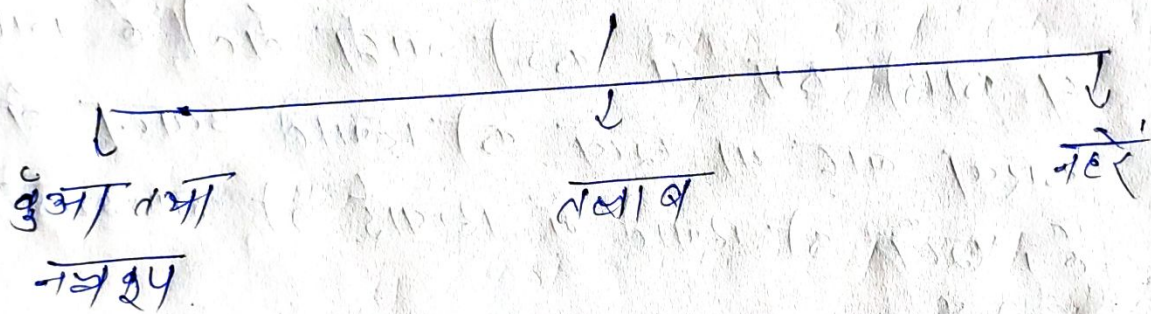 कुँआ तथा
नलकूप
तलाब
नहरें